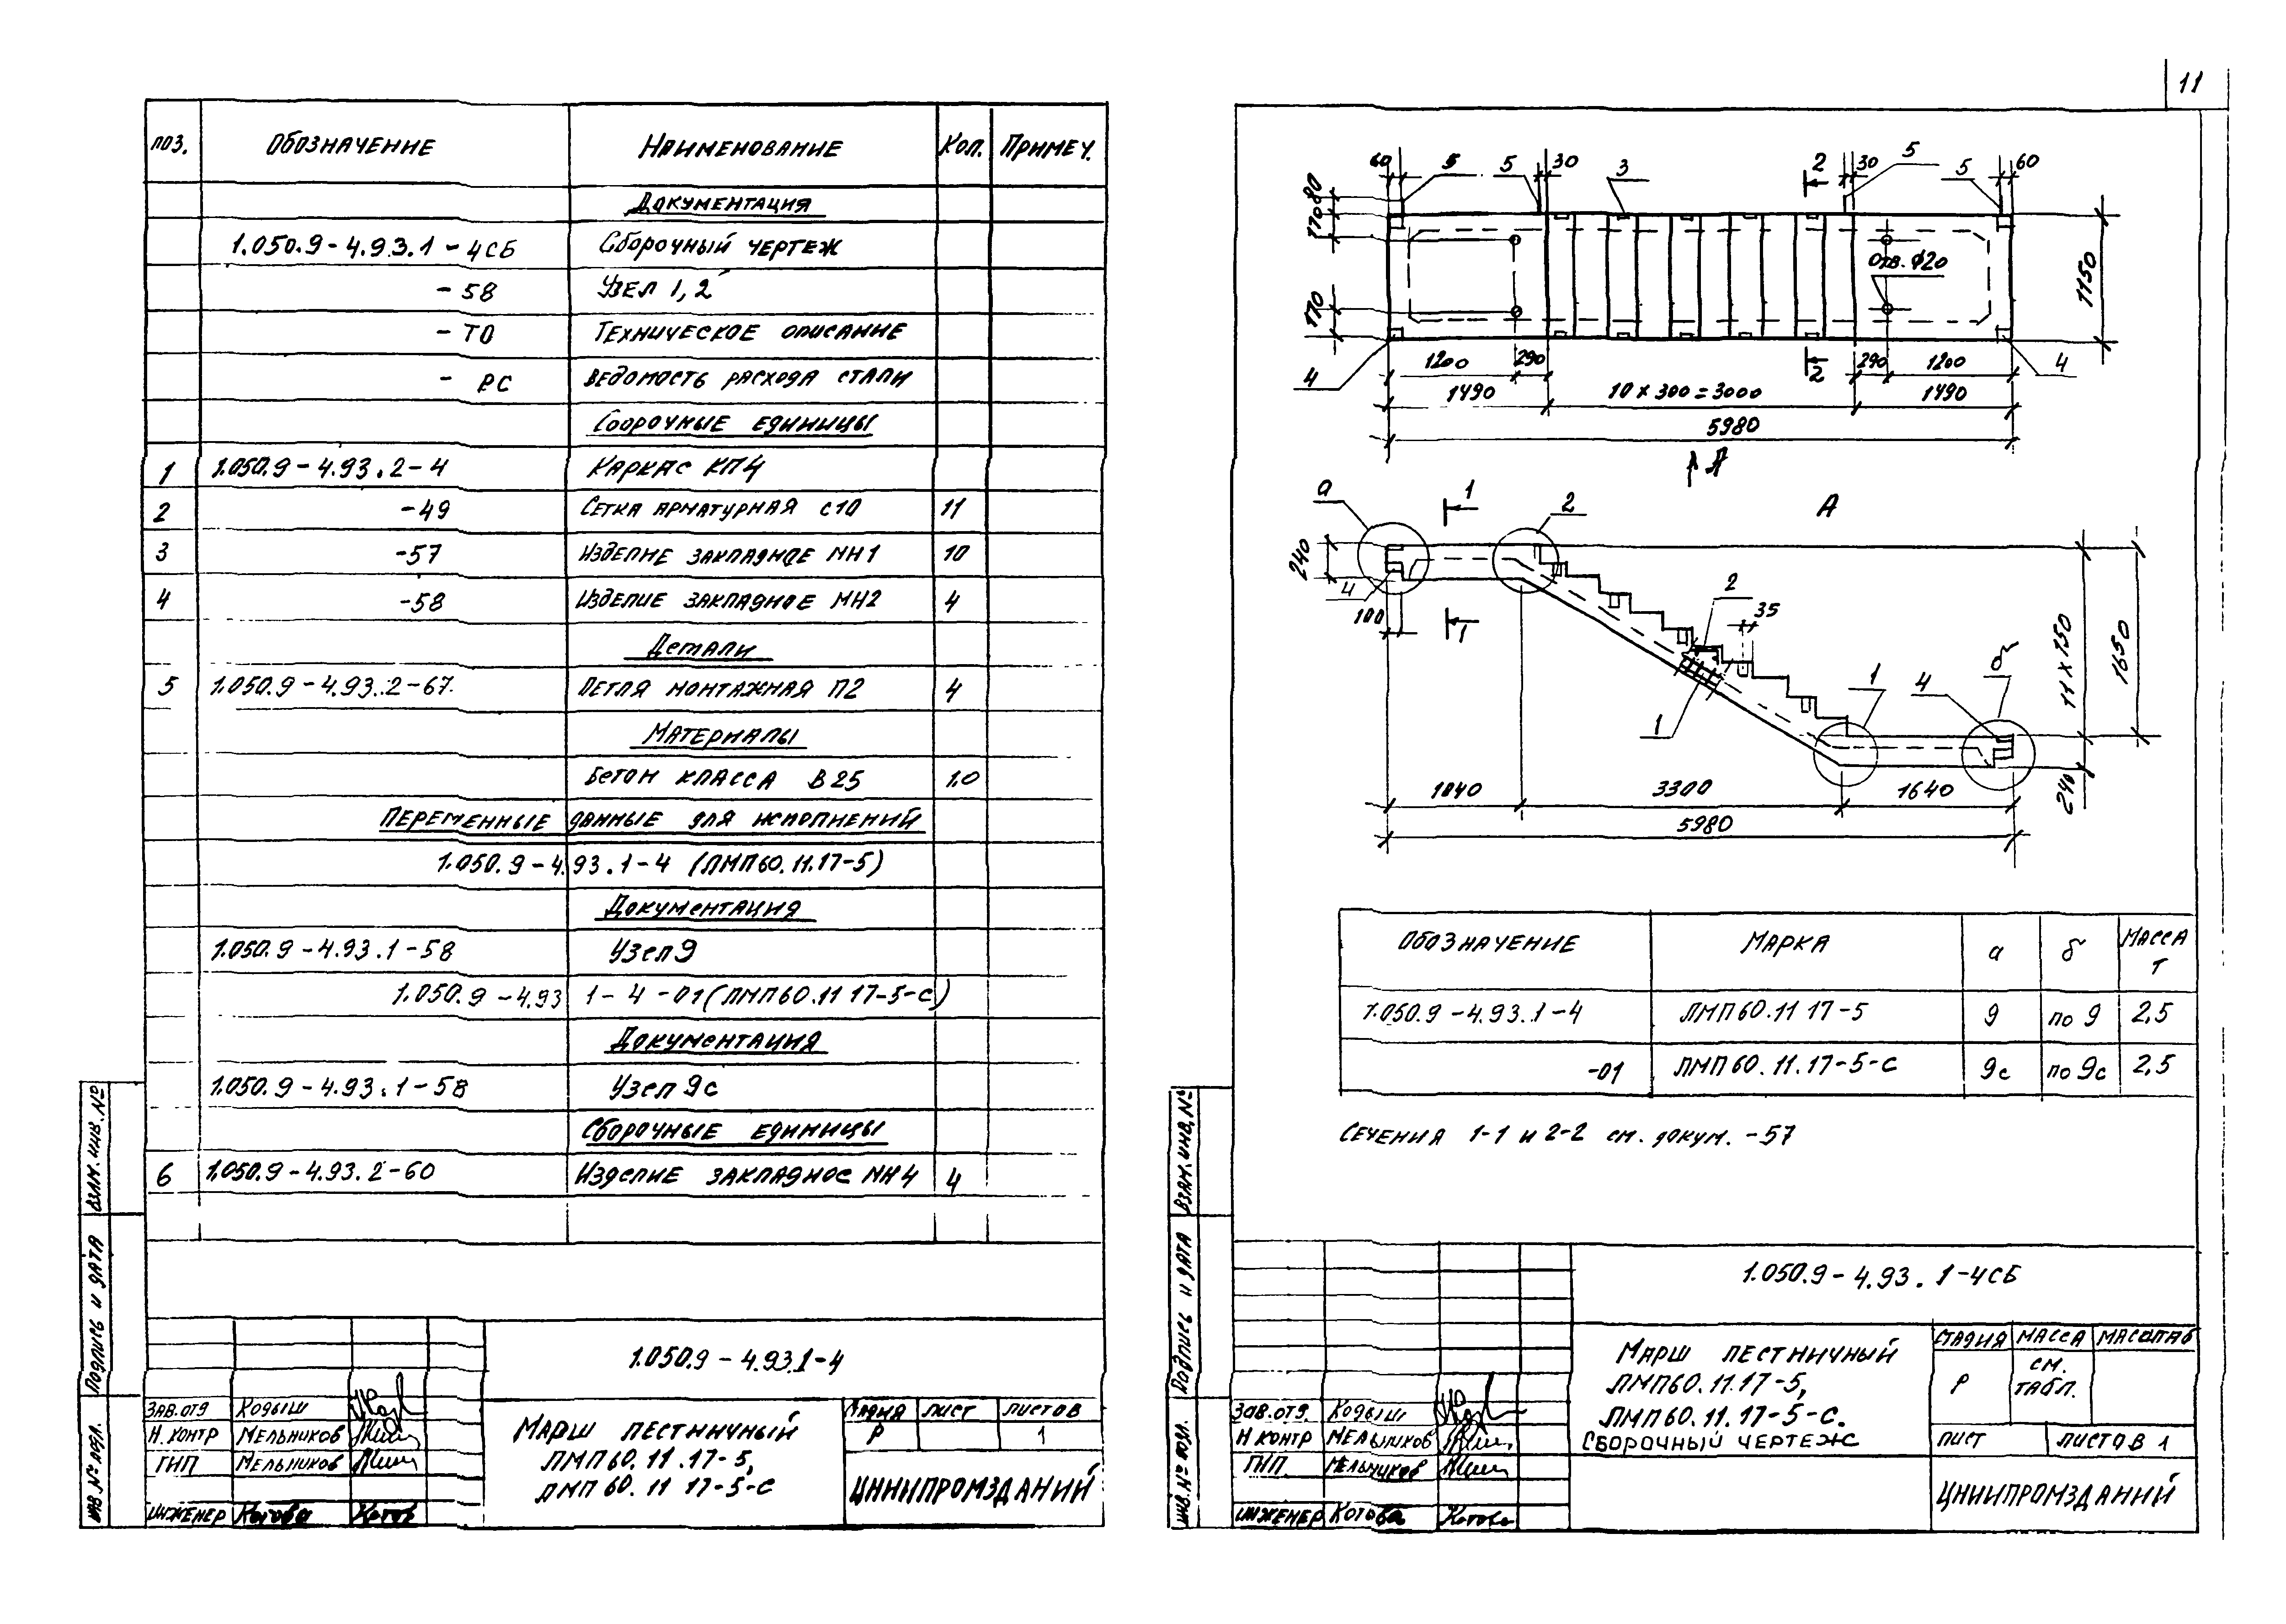 ПОЗ. ОБОЗНАЧЕНИЕ НАИМЕНОВАНИЕ КОЛ. ПРИМЕЧ.
ДОКУМЕНТАЦИЯ
1.050.9-4.93.1-4СБ СБОРОЧНЫЙ ЧЕРТЕЖ
-58 УЗЕЛ 1,2
-ТО ТЕХНИЧЕСКОЕ ОПИСАНИЕ
-РС ВЕДОМОСТЬ РАСХОДА СТАЛИ
СБОРОЧНЫЕ ЕДИНИЦЫ
1 1.050.9-4.93.2-4 КАРКАС КП4
2 -49 СЕТКА АРМАТУРНАЯ С10 11
3 -57 ИЗДЕЛИЕ ЗАКЛАДНОЕ МН1 10
4 -58 ИЗДЕЛИЕ ЗАКЛАДНОЕ МН2 4
ДЕТАЛИ
5 1.050.9-4.93.2-67. ПЕТЛЯ МОНТАЖНАЯ П2 4
МАТЕРИАЛЫ
БЕТОН КЛАССА В25 1.0
ПЕРЕМЕННЫЕ ДАННЫЕ ДЛЯ ИСПОЛНЕНИЙ
1.050.9-4.93.1-4 (ЛМП60.11.17-5)
ДОКУМЕНТАЦИЯ
1.050.9-4.93.1-58 УЗЕЛ 9
1.050.9-4.93 1-4-01 (ЛМП60.11 17-5-С)
ДОКУМЕНТАЦИЯ
1.050.9-4.93.1-58 УЗЕЛ 9с
СБОРОЧНЫЕ ЕДИНИЦЫ
6 1.050.9-4.93.2-60 ИЗДЕЛИЕ ЗАКЛАДНОЕ МН4 4
ВЗАМ. ИНВ. №
ПОДПИСЬ И ДАТА
ИНВ № ПОДЛ.
1.050.9-4.93.1-4
ЗАВ.ОТД КОДЫШ
Н.КОНТР МЕЛЬНИКОВ
ГИП МЕЛЬНИКОВ
ИНЖЕНЕР КОТОВА
МАРШ ЛЕСТНИЧНЫЙ
ЛМП60.11.17-5,
ЛМП 60.11 17-5-С
СТАДИЯ ЛИСТ ЛИСТОВ
Р 1
ЦНИИПРОМЗДАНИЙ
11
60 5 5 30 3 2 30 5 5 60
80
170
170
ОТВ. Ф20
1150
4 1200 290 2 290 1200 4
1490 10 х 300 = 3000 1490
5980
А
А
а 1 2
240
4
100
1
2 35
1
1 4 б
11 х 150
1650
240
1040 3300 1640
5980
ОБОЗНАЧЕНИЕ МАРКА а б МАССА Т
1.050.9-4.93.1-4 ЛМП60.11 17-5 9 по 9 2,5
-01 ЛМП60.11.17-5-С 9с по 9с 2,5
СЕЧЕНИЯ 1-1 и 2-2 см. докум. -57
ВЗАМ. ИНВ. №
ПОДПИСЬ И ДАТА
ИНВ. № ПОДЛ.
1.050.9-4.93.1-4СБ
ЗАВ.ОТД. КОДЫШ
Н КОНТР МЕЛЬНИКОВ
ГИП МЕЛЬНИКОВ
ИНЖЕНЕР КОТОВА
МАРШ ЛЕСТНИЧНЫЙ
ЛМП60.11.17-5,
ЛМП60.11.17-5-С.
СБОРОЧНЫЙ ЧЕРТЕЖ
СТАДИЯ МАССА МАСШТАБ
Р СМ. ТАБЛ.
ЛИСТ ЛИСТОВ 1
ЦНИИПРОМЗДАНИЙ